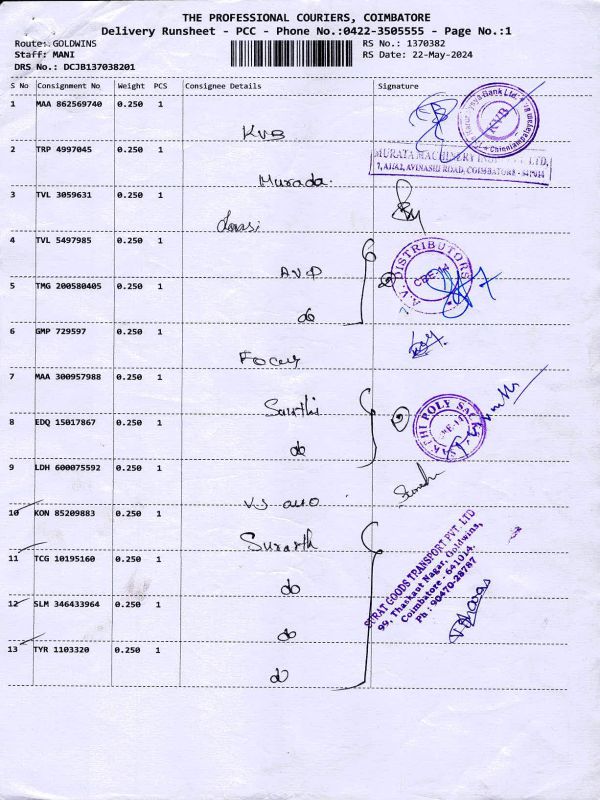 THE PROFESSIONAL COURIERS, COIMBATORE
Delivery Runsheet - PCC - Phone No.:0422-3505555 - Page No.:1
Route: GOLDWINS RS No.: 1370382
Staff: MANI RS Date: 22-May-2024
DRS No.: DCJB137038201
S No Consignment No Weight PCS Consignee Details Signature
1 MAA 862569740 0.250 1 KVB
KVB
2 TRP 4997045 0.250 1 Murada.
MURATA MACHINERY
7, AVINASHI ROAD, COIMBATORE - 641014
3 TVL 3059631 0.250 1
4 TVL 5497985 0.250 1 AVD
A.V. DISTRIBUTORS
CBE-14
5 TMG 200580405 0.250 1 do
6 GMP 729597 0.250 1 Focus
7 MAA 300957988 0.250 1 Sakthi
SAKTHI POLY SACKS
8 EDQ 15017867 0.250 1 do
9 LDH 600075592 0.250 1 V.S auto
10 KON 85209883 0.250 1
11 TCG 10195160 0.250 1 do
12 SLM 346433964 0.250 1 do
13 TYR 1103320 0.250 1 do
SURAT GOODS TRANSPORT PVT. LTD
99, Nagar, Goldwins,
Coimbatore - 641014.
Ph : 90470-28787